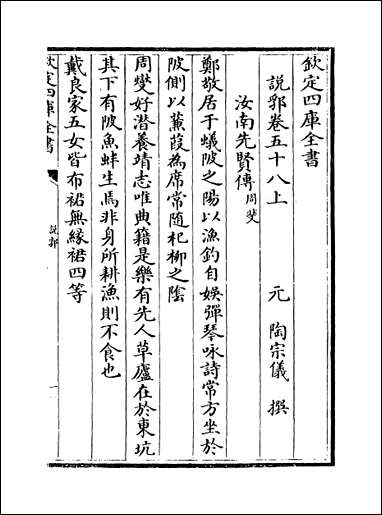 欽定四庫全書
說郛卷五十八上
元 陶宗儀 撰
汝南先賢傳周斐
鄭敬居于蟻陂之陽以漁釣自娛彈琴咏詩常方坐於
陂側以蒹葭為席常隨杞柳之隂
周燮好潛養靖志唯典籍是樂有先人草廬在於東坑
其下有陂魚蚌生焉非身所耕漁則不食也
戴良家五女皆布裙無縁裙四等
欽定四庫全書
說郛
一